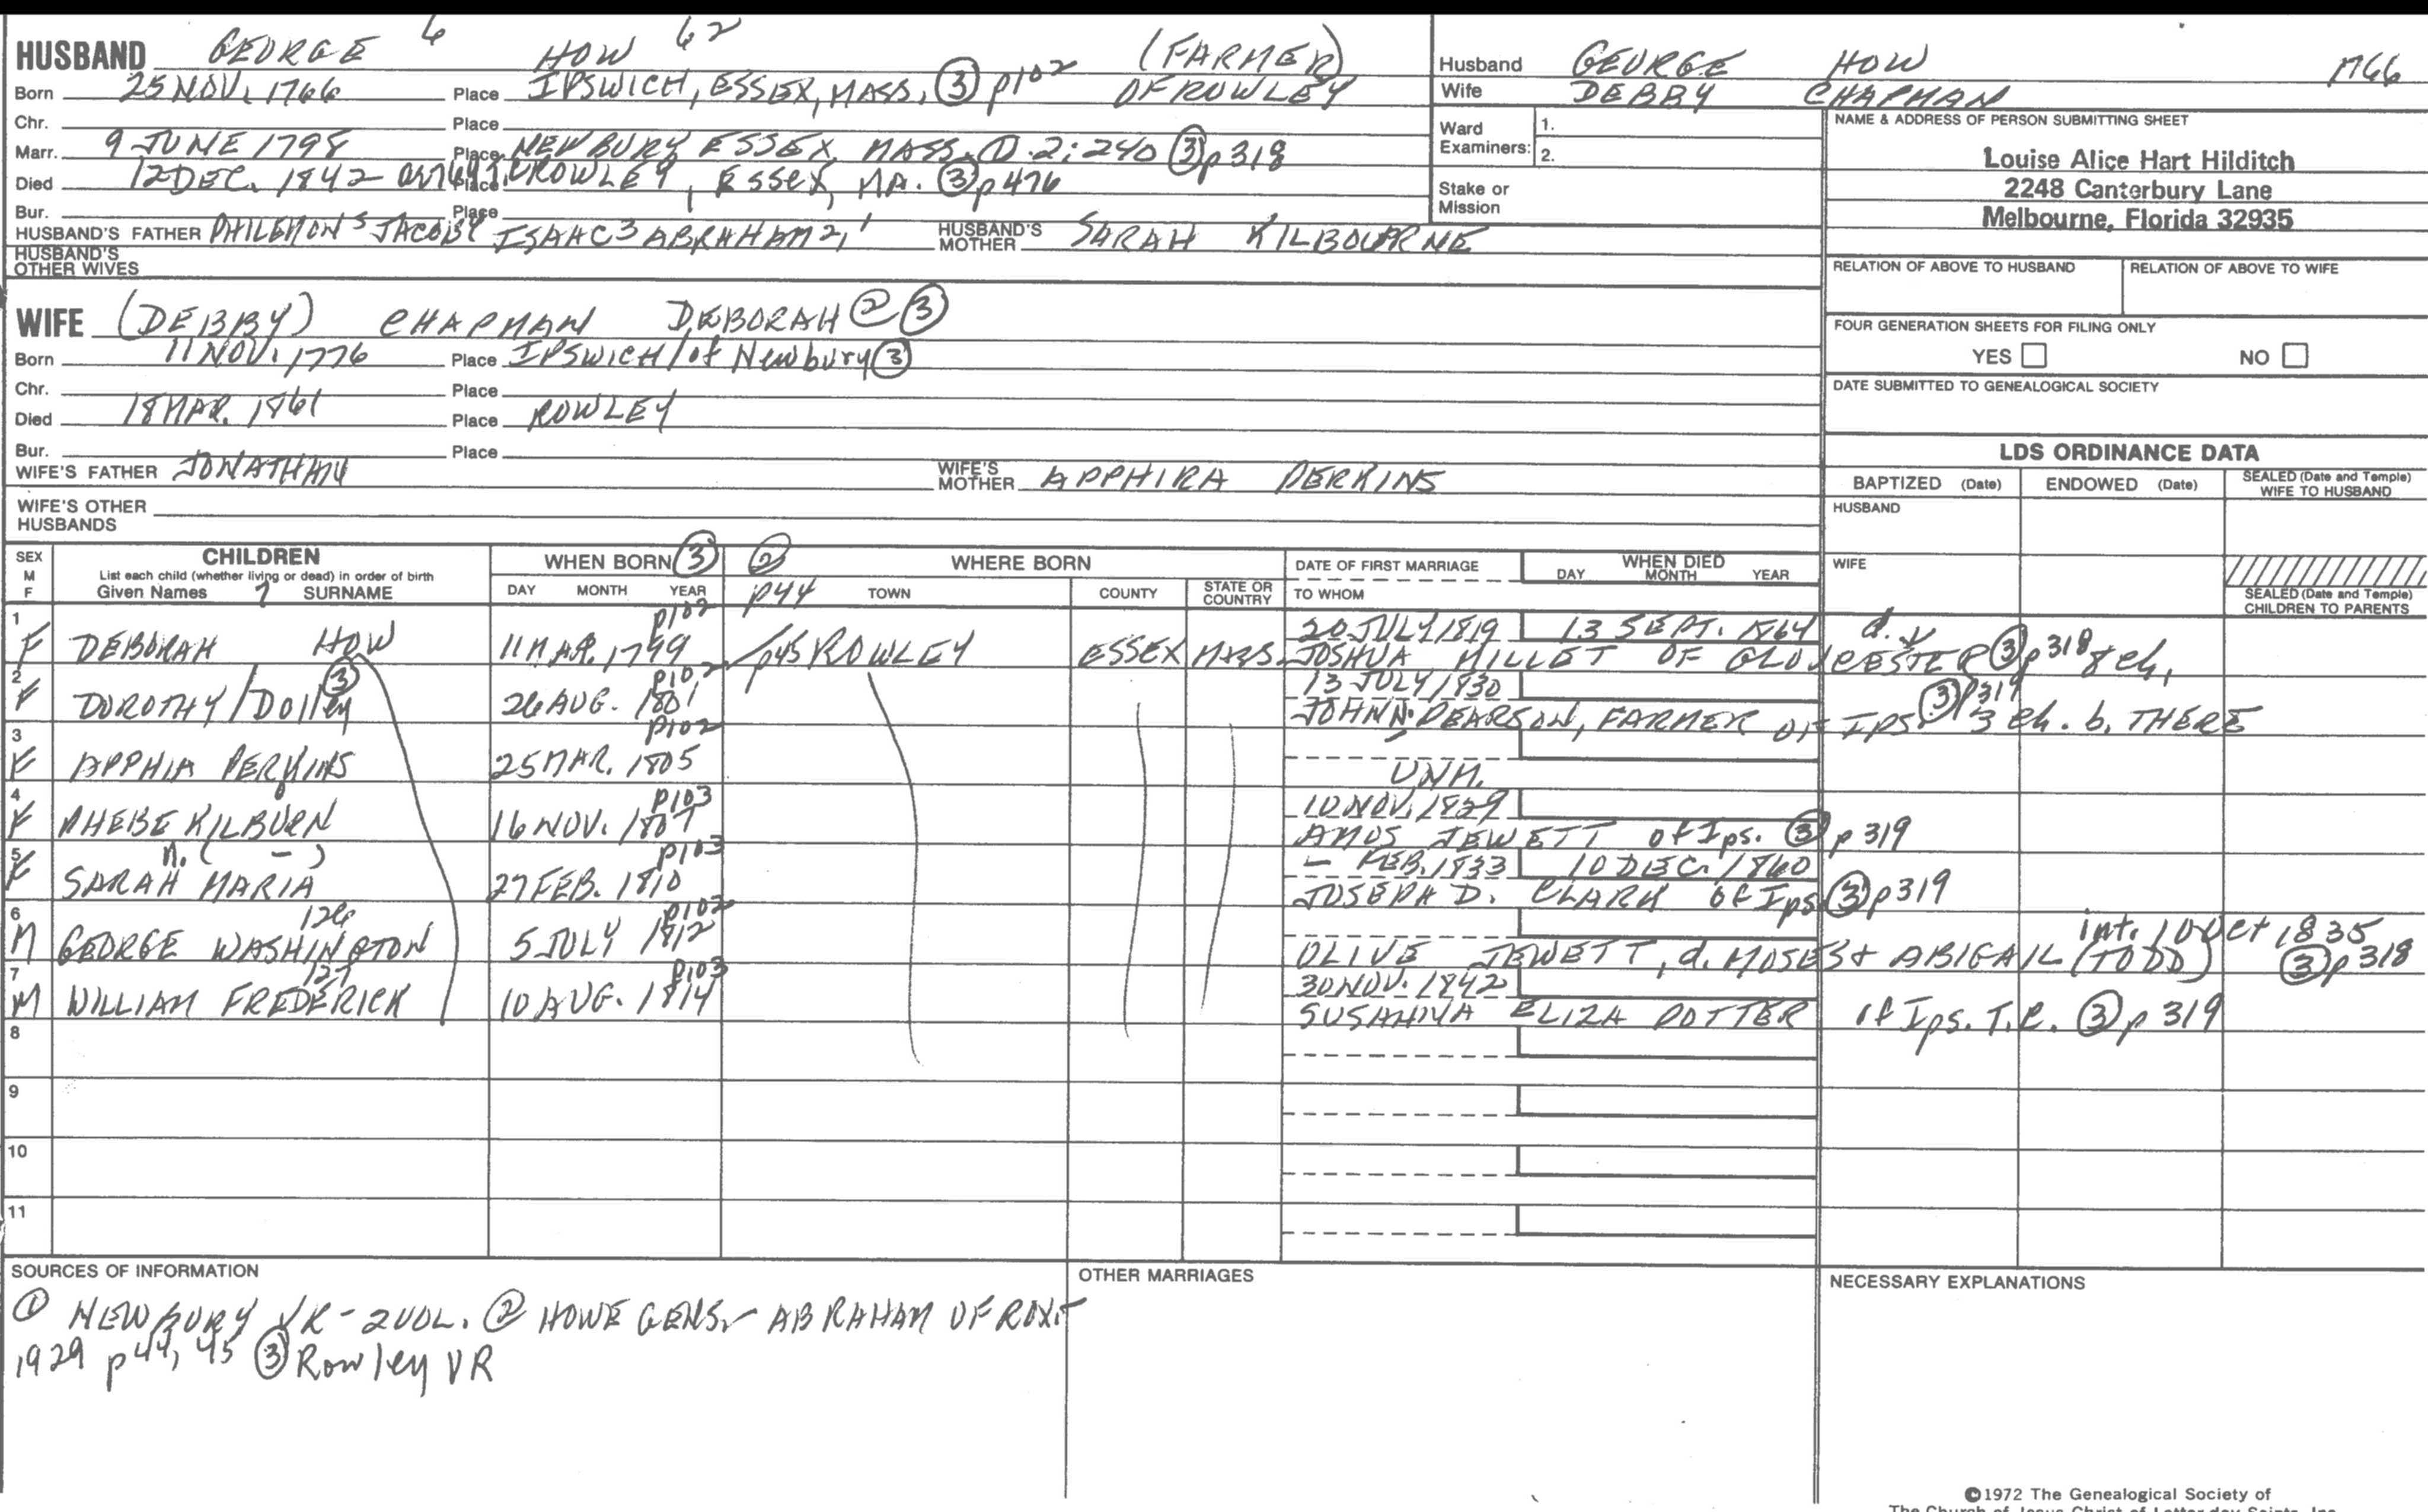 HUSBAND GEORGE 6 HOW 62 (FARMER)
Born 25 NOV. 1766 Place IPSWICH, ESSEX, MASS. ③ p102 OF ROWLEY
Chr. Place
Marr. 9 JUNE 1798 Place NEWBURY ESSEX MASS. ① 2:240 ③ p318
Died 12 DEC. 1842 Place ROWLEY, ESSEX, MA. ③ p476
Bur. Place
HUSBAND'S FATHER PHILEMON 5 JACOB 4 ISAAC 3 ABRAHAM 2, 1 HUSBAND'S MOTHER SARAH KILBOURNE
HUSBAND'S OTHER WIVES
WIFE (DEBBY) CHAPMAN DEBORAH ② ③
Born 11 NOV. 1776 Place IPSWICH/of Newbury ③
Chr. Place
Died 18 MAR. 1861 Place ROWLEY
Bur. Place
WIFE'S FATHER JONATHAN WIFE'S MOTHER APPHIRA PERKINS
WIFE'S OTHER HUSBANDS
Husband GEORGE HOW 1766
Wife DEBBY CHAPMAN
Ward Examiners: 1.
2.
Stake or Mission
NAME & ADDRESS OF PERSON SUBMITTING SHEET
Louise Alice Hart Hilditch
2248 Canterbury Lane
Melbourne, Florida 32935
RELATION OF ABOVE TO HUSBAND RELATION OF ABOVE TO WIFE
FOUR GENERATION SHEETS FOR FILING ONLY
YES NO
DATE SUBMITTED TO GENEALOGICAL SOCIETY
LDS ORDINANCE DATA
BAPTIZED (Date) ENDOWED (Date) SEALED (Date and Temple) WIFE TO HUSBAND
HUSBAND
WIFE
SEALED (Date and Temple) CHILDREN TO PARENTS
SEX M F CHILDREN WHEN BORN ③ ② WHERE BORN DATE OF FIRST MARRIAGE WHEN DIED
List each child (whether living or dead) in order of birth
Given Names 7 SURNAME DAY MONTH YEAR p44 TOWN COUNTY STATE OR COUNTRY TO WHOM DAY MONTH YEAR
1 p102 20 JULY 1819 13 SEPT. 1864
F DEBORAH HOW 11 MAR. 1799 p45 ROWLEY ESSEX MASS. JOSHUA MILLET OF GLOUCESTER ③ p318 8 ch.
2 p102 13 JULY 1830
F DOROTHY/Dolley ③ 26 AUG. 1801 JOHN N. PEARSON, FARMER OF IPS. ③ p319 3 ch. b. THERE
3 p102
F APPHIA PERKINS 25 MAR. 1805 UNM.
4 p103 10 NOV. 1829
F PHEBE KILBURN 16 NOV. 1807 AMOS JEWETT of Ips. ③ p319
5 n. ( - ) p103 - FEB. 1833 10 DEC. 1860
F SARAH MARIA 27 FEB. 1810 JOSEPH D. CLARK of Ips ③ p319
6 126 p102 int. 10 Oct 1835
M GEORGE WASHINGTON 5 JULY 1812 OLIVE JEWETT, d. MOSES + ABIGAIL (TODD) ③ p318
7 127 p103 30 NOV. 1842
M WILLIAM FREDERICK 10 AUG. 1814 SUSANNA ELIZA POTTER of Ips. T.R. ③ p319
8
9
10
11
SOURCES OF INFORMATION OTHER MARRIAGES NECESSARY EXPLANATIONS
① NEWBURY VR - 2 VOL. ② HOWE GENS. - ABRAHAM OF ROX.
1929 p44, 45 ③ Rowley VR
©1972 The Genealogical Society of
The Church of Jesus Christ of Latter-day Saints, Inc.